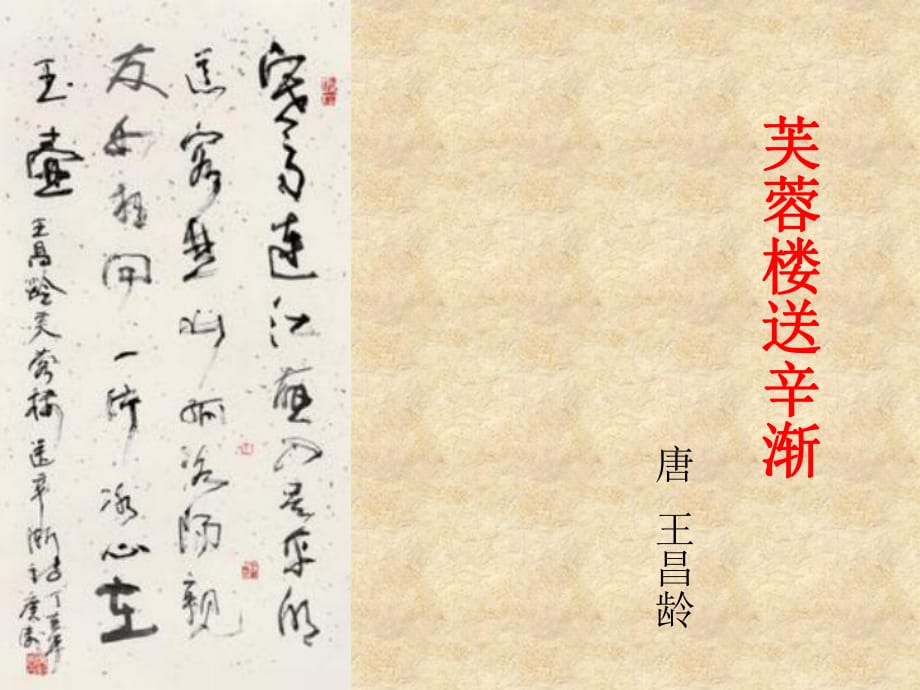 芙蓉楼送辛渐
唐 王昌龄
寒雨连江入吴平明
送客楚山孤洛阳親
友如相问一片冰心在
玉壶 王昌龄芙蓉楼送辛渐诗